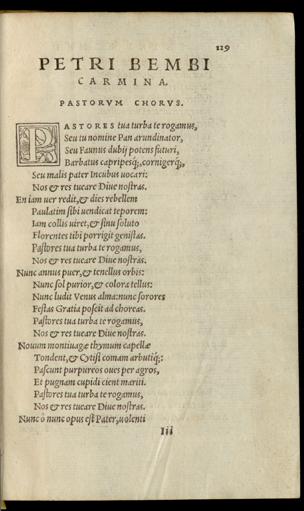 119
PETRI BEMBI
CARMINA.
PASTORVM CHORVS.
PASTORES tua turba te rogamus,
Seu tu nomine Pan arundinator,
Seu Faunus dubij potens futuri,
Barbatus capripesq;, cornigerq;,
Seu malis pater Incubus uocari:
Nos & res tueare Diue nostras.
En iam uer redit, & dies rebellem
Paulatim sibi uendicat teporem:
Iam collis uiret, & sinu soluto
Florentes tibi porrigit genistas.
Pastores tua turba te rogamus,
Nos & res tueare Diue nostras.
Nunc annus puer, & tenellus orbis:
Nunc sol purior, & colora tellus:
Nunc ludit Venus alma: nunc sorores
Festas Gratia poscit ad choreas.
Pastores tua turba te rogamus,
Nos & res tueare Diue nostras.
Nouum montiuagæ thymum capellæ
Tondent, & Cytisi comam arbutiq;:
Pascunt purpureos oues per agros,
Et pugnam cupidi cient mariti.
Pastores tua turba te rogamus,
Nos & res tueare Diue nostras.
Nunc ô nunc opus est Pater, uolenti
Iii